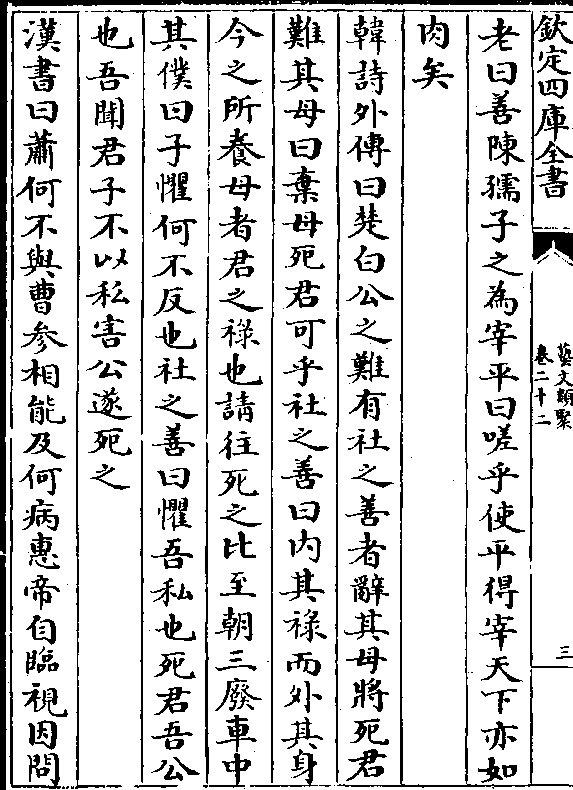 欽定四庫全書
藝文類聚
卷二十二
三
老曰善陳孺子之為宰平曰嗟乎使平得宰天下亦如
肉矣
韓詩外傳曰楚白公之難有社之善者辭其母將死君
難其母曰棄母死君可乎社之善曰内其祿而外其身
今之所養母者君之祿也請往死之比至朝三廢車中
其僕曰子懼何不反也社之善曰懼吾私也死君吾公
也吾聞君子不以私害公遂死之
漢書曰蕭何不與曹参相能及何病惠帝自臨視因問